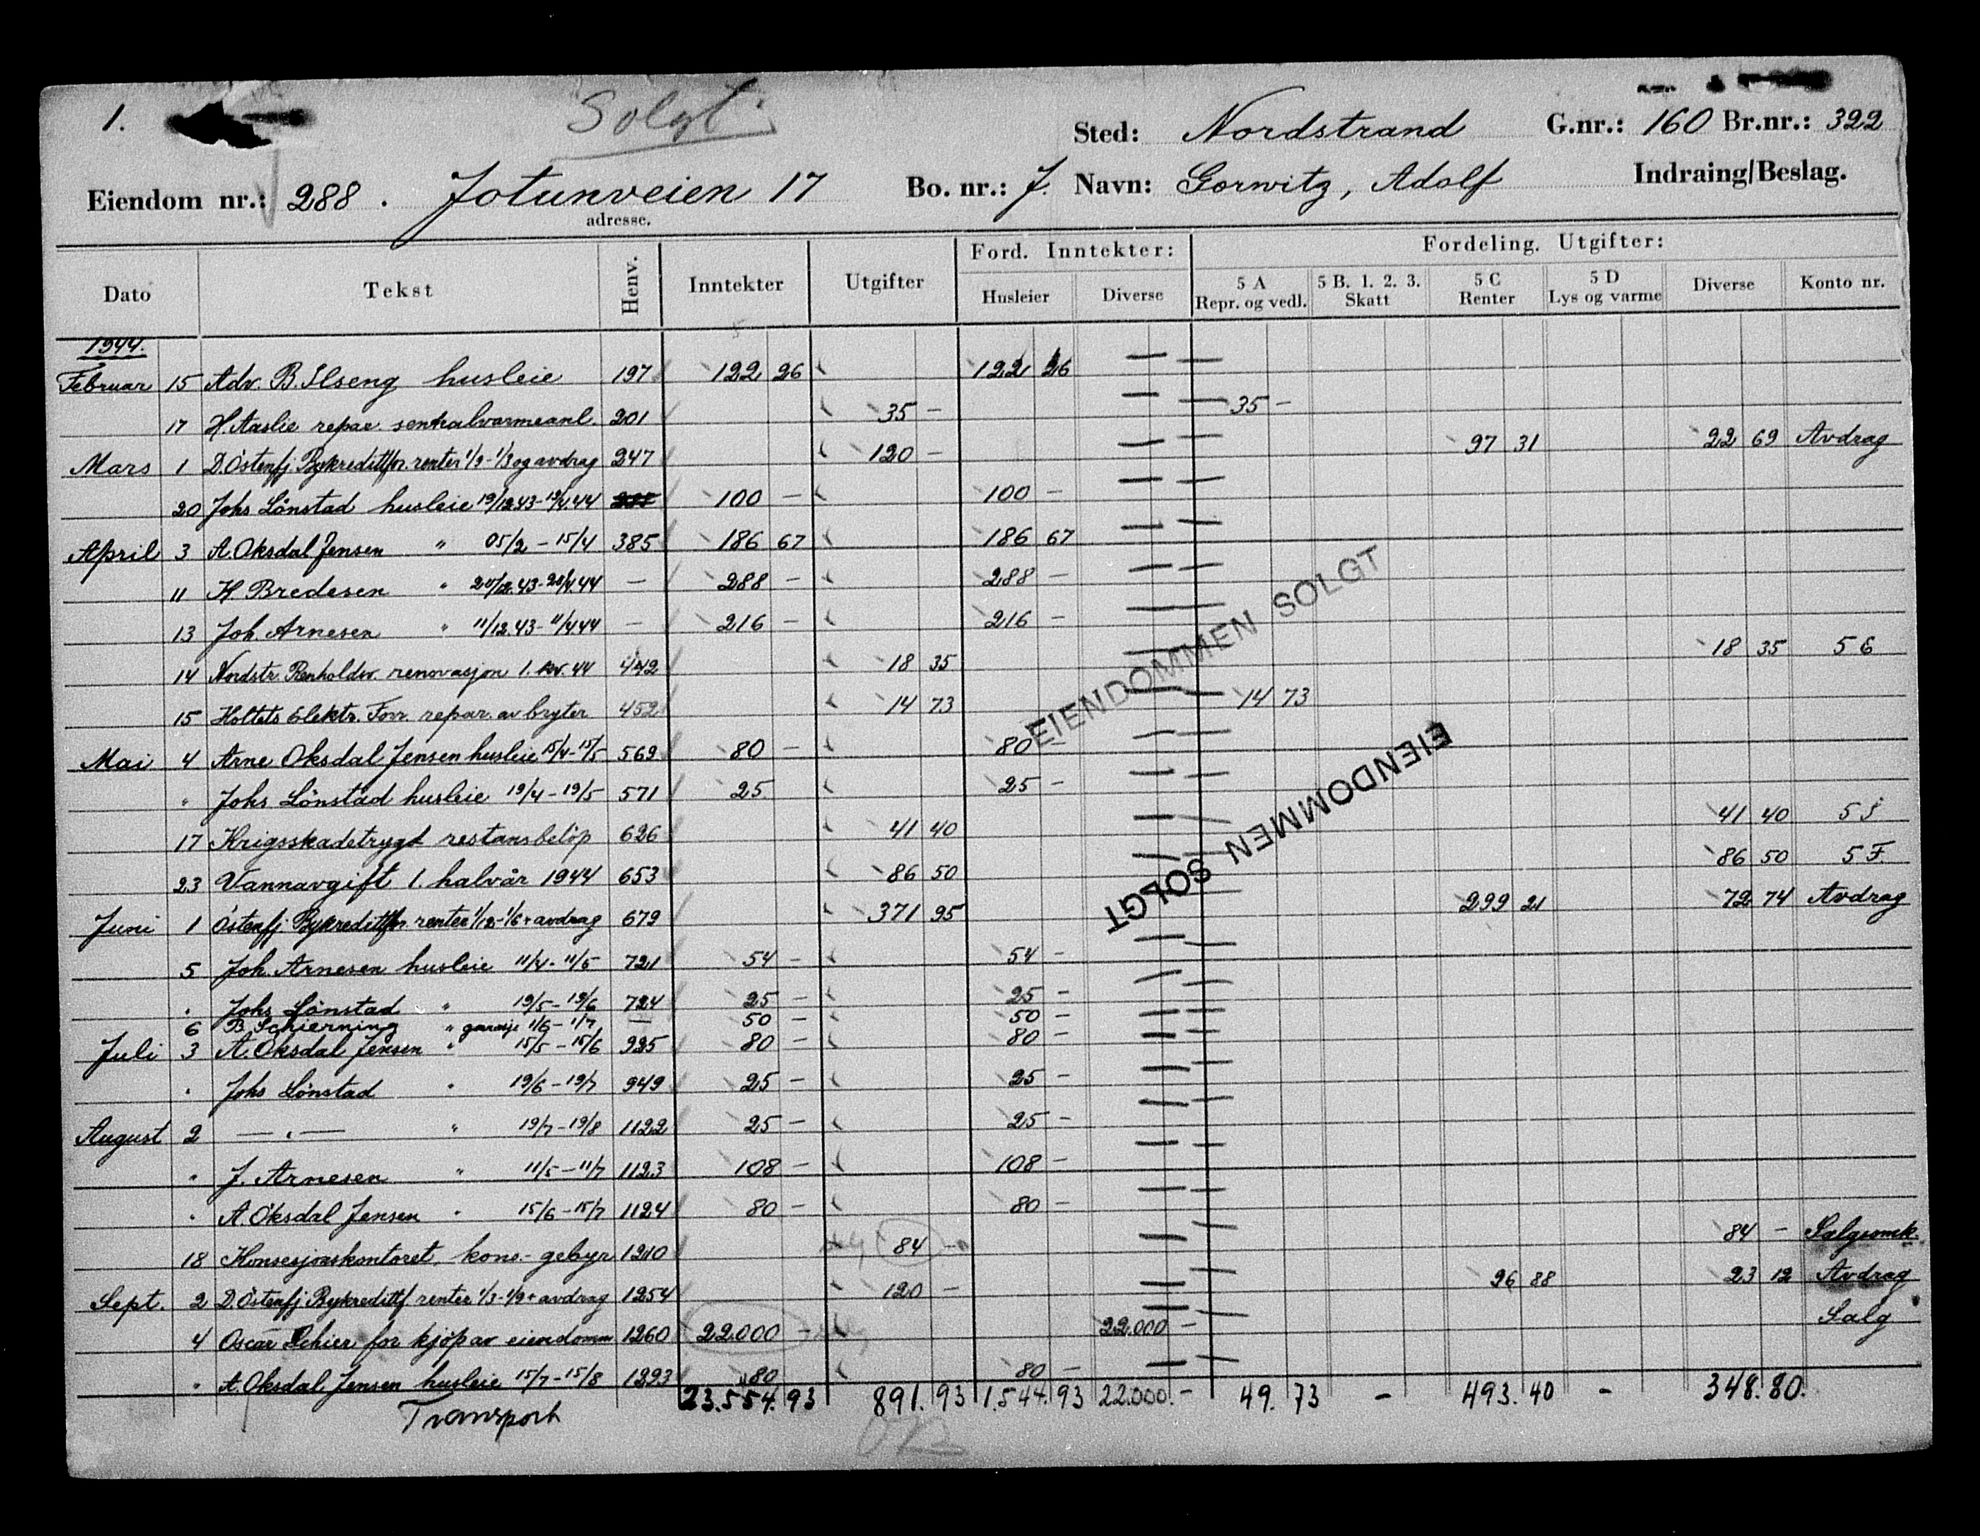 1. Solgt. Sted: Nordstrand G.nr.: 160 Br.nr.: 322
Eiendom nr.: 288. Jotunveien 17 Bo. nr.: J. Navn: Gorwitz, Adolf Indraing/Beslag.
adresse.
Dato Tekst Henv. Inntekter Utgifter Ford. Inntekter: Fordeling. Utgifter:
Husleier Diverse 5 A Repr. og vedl. 5 B. 1. 2. 3. Skatt 5 C Renter 5 D Lys og varme Diverse Konto nr.
1944.
Februar 15 Adv. B. Ilseng husleie 197 122 26 122 26
17 H. Aaslie repar. sentralvarmeanl. 201 35 — 35 —
Mars 1 D. Östenfj. Bykredittfor. renter 1/9-1/3 og avdrag 247 120 — 97 31 22 69 Avdrag
20 Johs Lönstad husleie 19/12.43-19/4.44 100 — 100 —
April 3 A. Oksdal Jensen " 05/2 - 15/4 385 186 67 186 67
11 H. Bredesen " 20/12.43-20/4.44 — 288 — 288 —
13 Joh. Arnesen " 11/12.43-11/4.44 — 216 — 216 —
14 Nordstr. Renholdsv. renovasjon 1. kv. 44 442 18 35 18 35 5 G
15 Holtets Elektr. Forr. repar. av bryter 452 14 73 14 73
Mai 4 Arne Oksdal Jensen husleie 15/4-15/5 569 80 — 80 —
" Johs Lönstad husleie 19/4-19/5 571 25 25 —
17 Krigsskadetrygd restansbelöp 626 41 40 41 40 5 J
23 Vannavgift 1. halvår 1944 653 86 50 86 50 5 F
Juni 1 Östenfj. Bykredittfor. renter 1/12-1/6 + avdrag 679 371 95 299 21 72 74 Avdrag
5 Joh. Arnesen husleie 11/4-11/5 721 54 — 54 —
" Johs Lönstad " 19/5-19/6 724 25 — 25 —
6 B. Schierning " garasje 1/6-1/7 — 50 — 50 —
Juli 3 A. Oksdal Jensen " 15/5-15/6 925 80 — 80 —
" Johs Lönstad " 19/6-19/7 949 25 — 25 —
August 2 — " — " 19/7-19/8 1122 25 — 25 —
" J. Arnesen " 11/5-11/7 1123 108 — 108 —
" A. Oksdal Jensen " 15/6-15/7 1124 80 — 80 —
18 Konsesjonskontoret, kons.-gebyr 1210 84 — 84 — Salgsomk.
Sept. 2 D. Östenfj. Bykredittf. renter 1/3-1/9 + avdrag 1254 120 — 96 88 23 12 Avdrag
4 Oscar Schier for kjöp av eiendomm 1260 22.000 — 22.000 — Salg
" A. Oksdal Jensen husleie 15/7-15/8 1293 80 80 —
Transport 23.554.93 891.93 1.544.93 22.000.— 49.73 — 493.40 — 348.80.
EIENDOMMEN SOLGT
EIENDOMMEN SOLGT